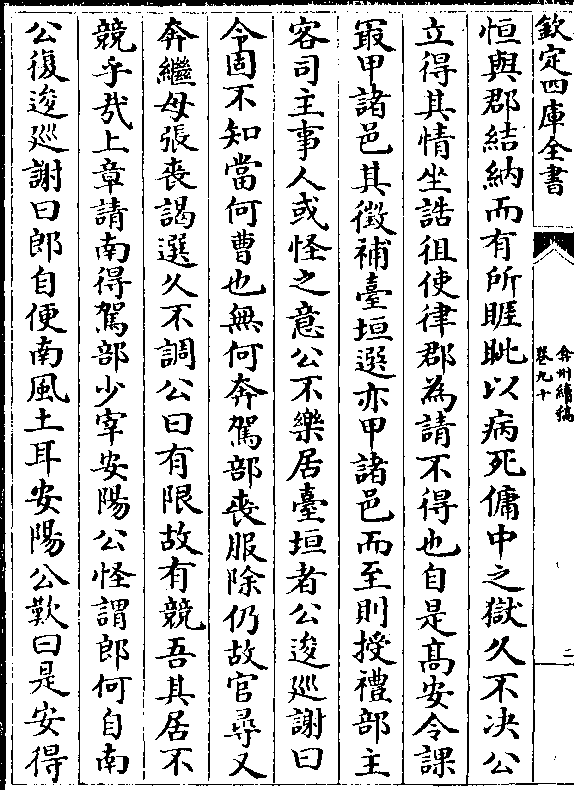 欽定四庫全書
弇州續稿
卷九十
二
恒與郡結納而有所睚眦以病死傭中之獄久不决公
立得其情坐誥徂使律郡為請不得也自是髙安令課
冣甲諸邑其徵補臺垣選亦甲諸邑而至則授禮部主
客司主事人或怪之意公不樂居臺垣者公逡廵謝曰
今固不知當何曹也無何奔駕部喪服除仍故官尋又
奔繼母張喪謁選久不調公曰有限故有競吾其居不
競乎㢤上章請南得駕部少宰安陽公怪謂郎何自南
公復逡廵謝曰郎自便南風土耳安陽公歎曰是安得